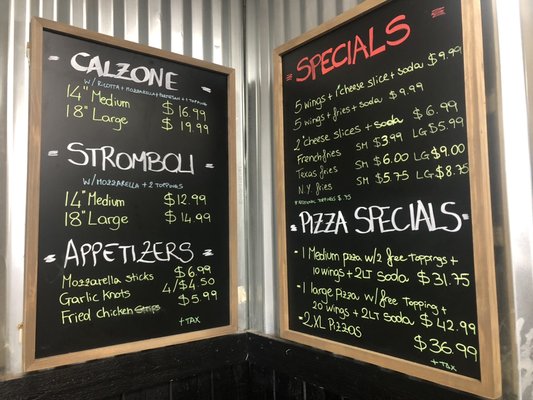 CALZONE
W/ RICOTTA + MOZZARELLA + PARMESAN + 1 TOPPING
14" Medium $16.99
18" Large $19.99
STROMBOLI
W/ MOZZARELLA + 2 TOPPINGS
14" Medium $12.99
18" Large $14.99
APPETIZERS
Mozzarella sticks $6.99
Garlic Knots 4/$4.50
Fried chicken strips $5.99
+TAX
SPECIALS
5 wings + 1 cheese slice + soda $9.99
5 wings + fries + soda $9.99
2 cheese slices + soda $6.99
Frenchfries SM $3.99 LG $5.99
Texas fries SM $6.00 LG $9.00
N.Y. fries SM $5.75 LG $8.75
* ADDITIONAL TOPPINGS $.75
PIZZA SPECIALS
- 1 Medium pizza w/2 free Toppings +
10 wings + 2LT Soda $31.75
- 1 large pizza w/free Topping +
20 wings + 2LT Soda $42.99
- 2 XL Pizzas
$36.99
+TAX